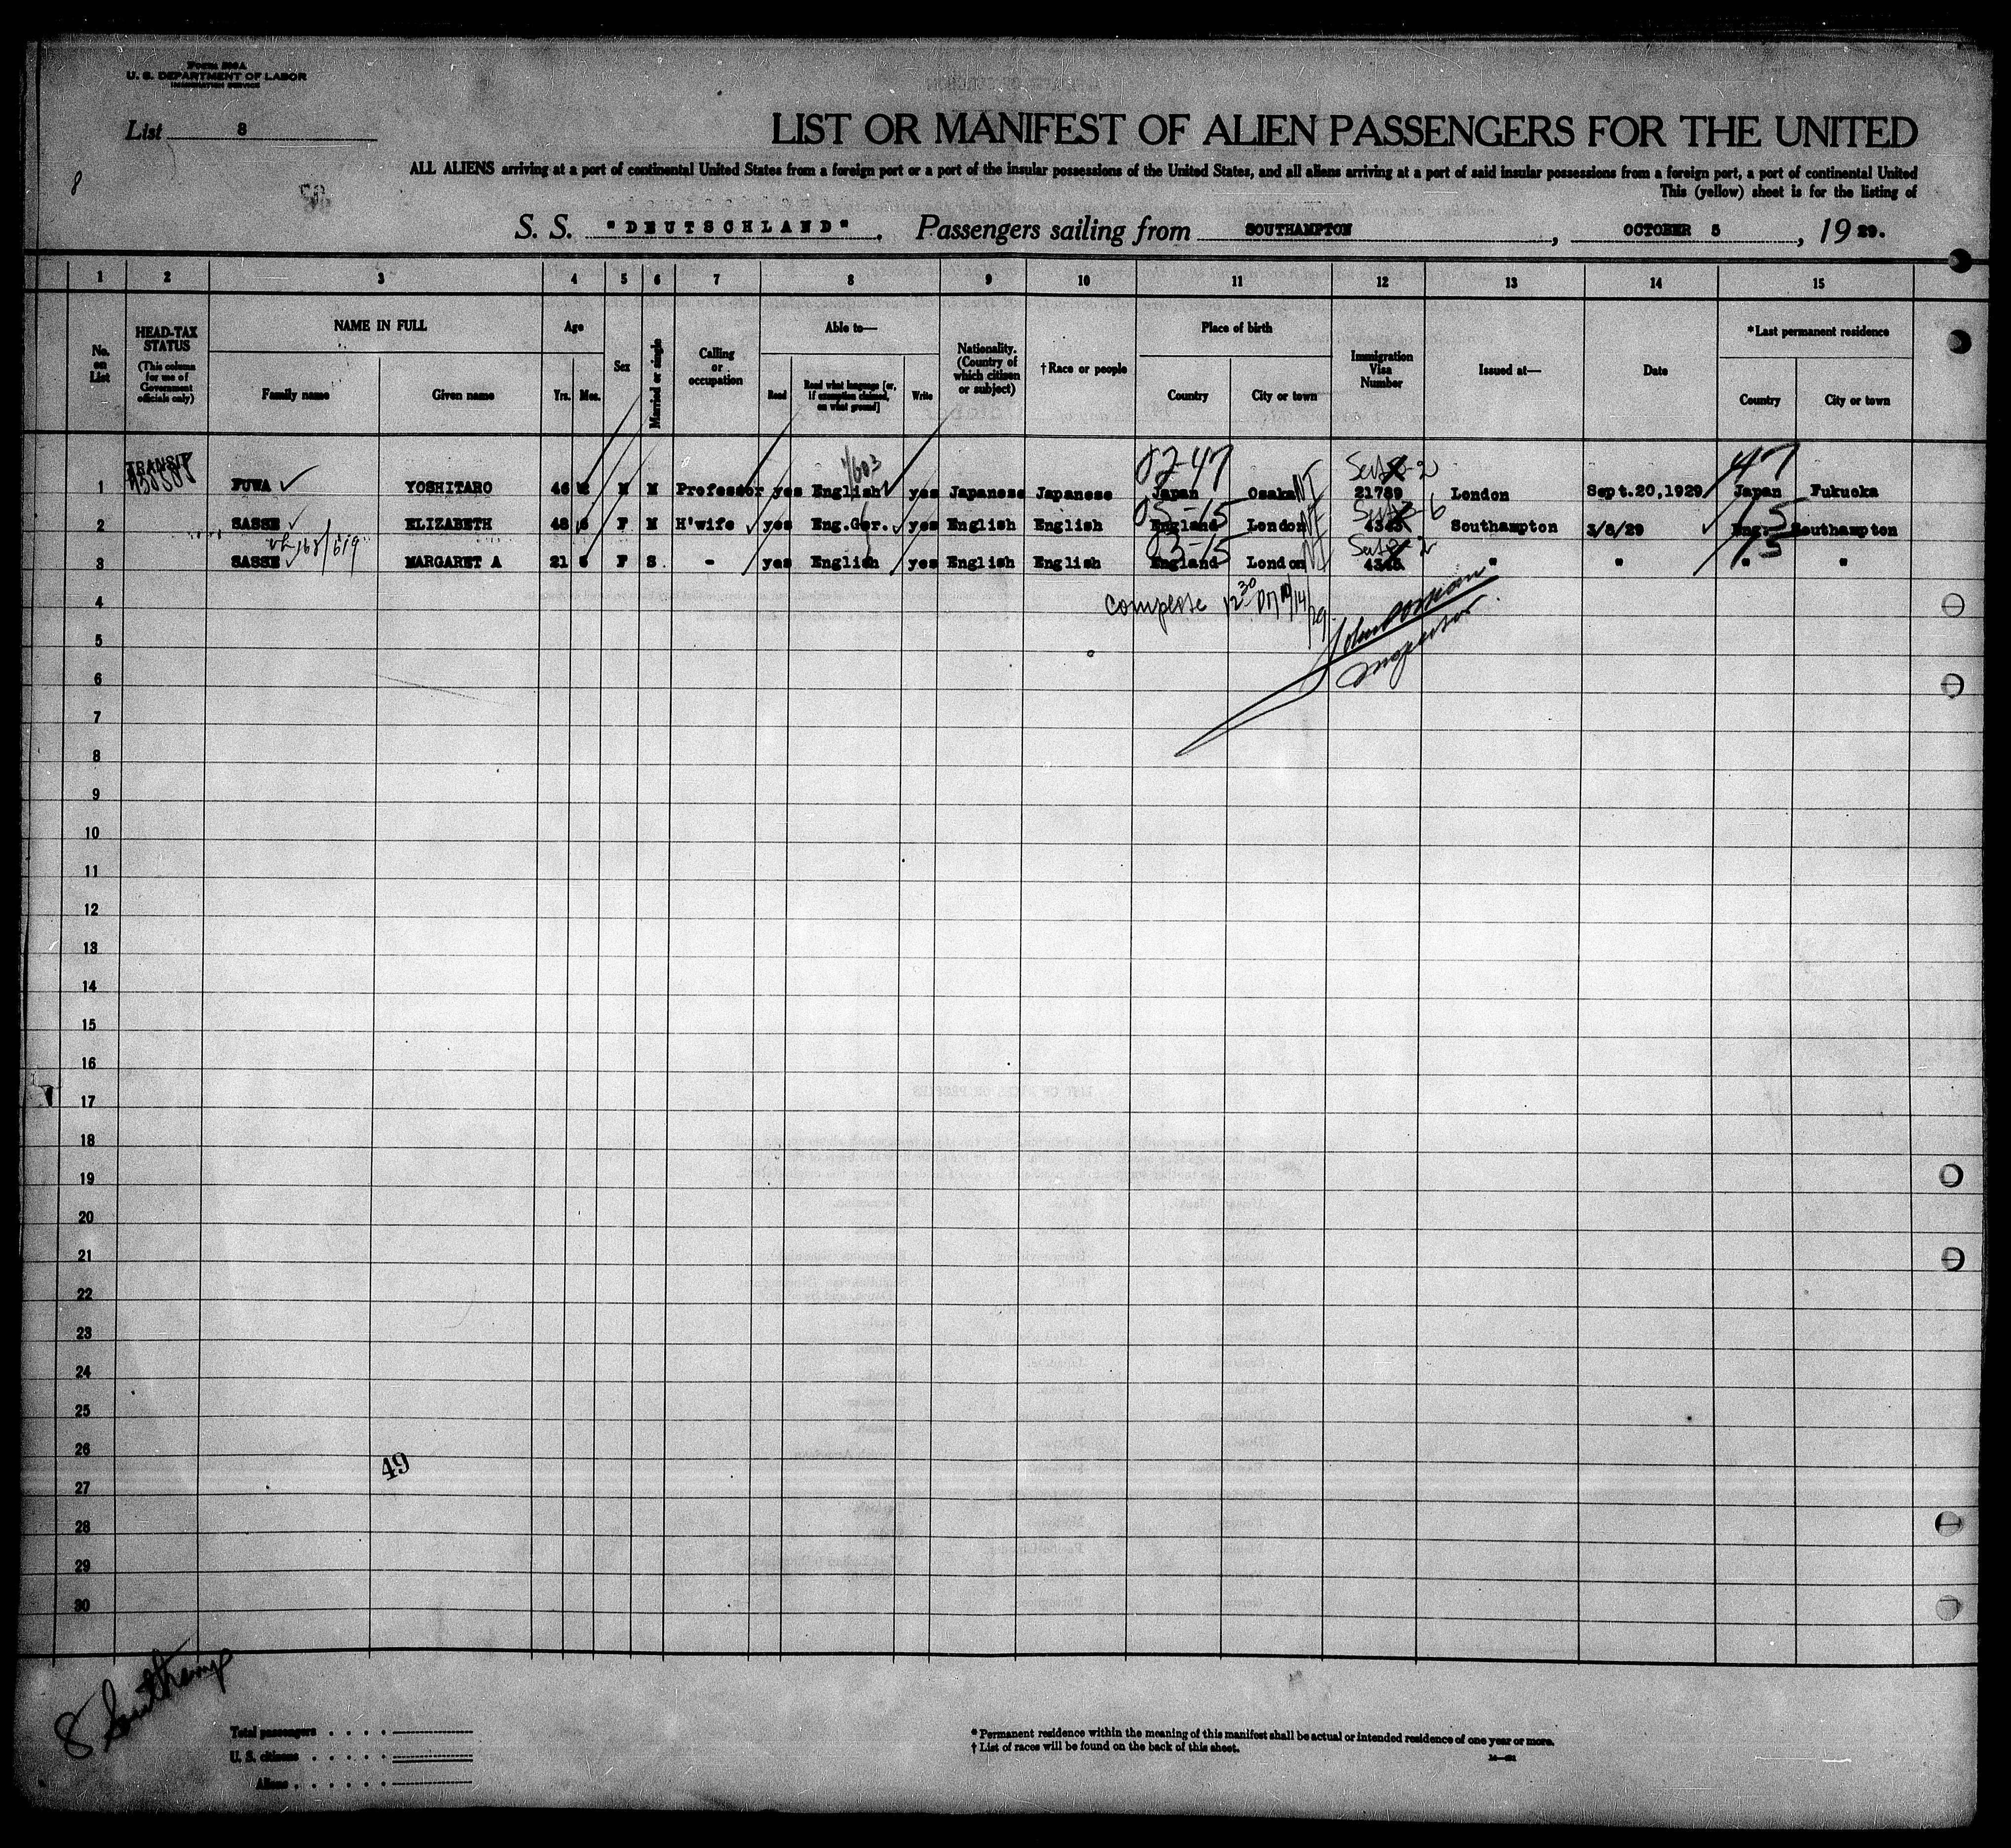 Form 500A
U. S. DEPARTMENT OF LABOR
IMMIGRATION SERVICE
List 8
8
LIST OR MANIFEST OF ALIEN PASSENGERS FOR THE UNITED
ALL ALIENS arriving at a port of continental United States from a foreign port or a port of the insular possessions of the United States, and all aliens arriving at a port of said insular possessions from a foreign port, a port of continental United
This (yellow) sheet is for the listing of
S. S. "DEUTSCHLAND", Passengers sailing from SOUTHAMPTON, OCTOBER 5, 1929.
1 2 3 4 5 6 7 8 9 10 11 12 13 14 15
No. on List
HEAD-TAX STATUS
(This column for use of Government officials only)
NAME IN FULL
Family name Given name
Age
Yrs. Mos.
Sex
Married or single
Calling or occupation
Able to—
Read Read what language [or, if exemption claimed, on what ground] Write
Nationality. (Country of which citizen or subject)
†Race or people
Place of birth
Country City or town
Immigration Visa Number
Issued at—
Date
*Last permanent residence
Country City or town
TRANSIT 4/603 02-47 47
1 FUWA YOSHITARO 46 M M Professor yes English yes Japanese Japanese Japan Osaka 21789 London Sept.20,1929 Japan Fukuoka
05-15 15
2 SASSE ELIZABETH 48 F M H'wife yes Eng.Ger. yes English English England London 4345 Southampton 3/8/29 Eng. Southampton
03-15 15
3 SASSE MARGARET A 21 F S - yes English yes English English England London " " " "
4
5
Inspector
6
7
8
9
10
11
12
13
14
15
16
17
18
19
20
21
22
23
24
25
26
49
27
28
29
30
8 Southamp
Total passengers
U. S. citizens
Aliens
* Permanent residence within the meaning of this manifest shall be actual or intended residence of one year or more.
† List of races will be found on the back of this sheet.